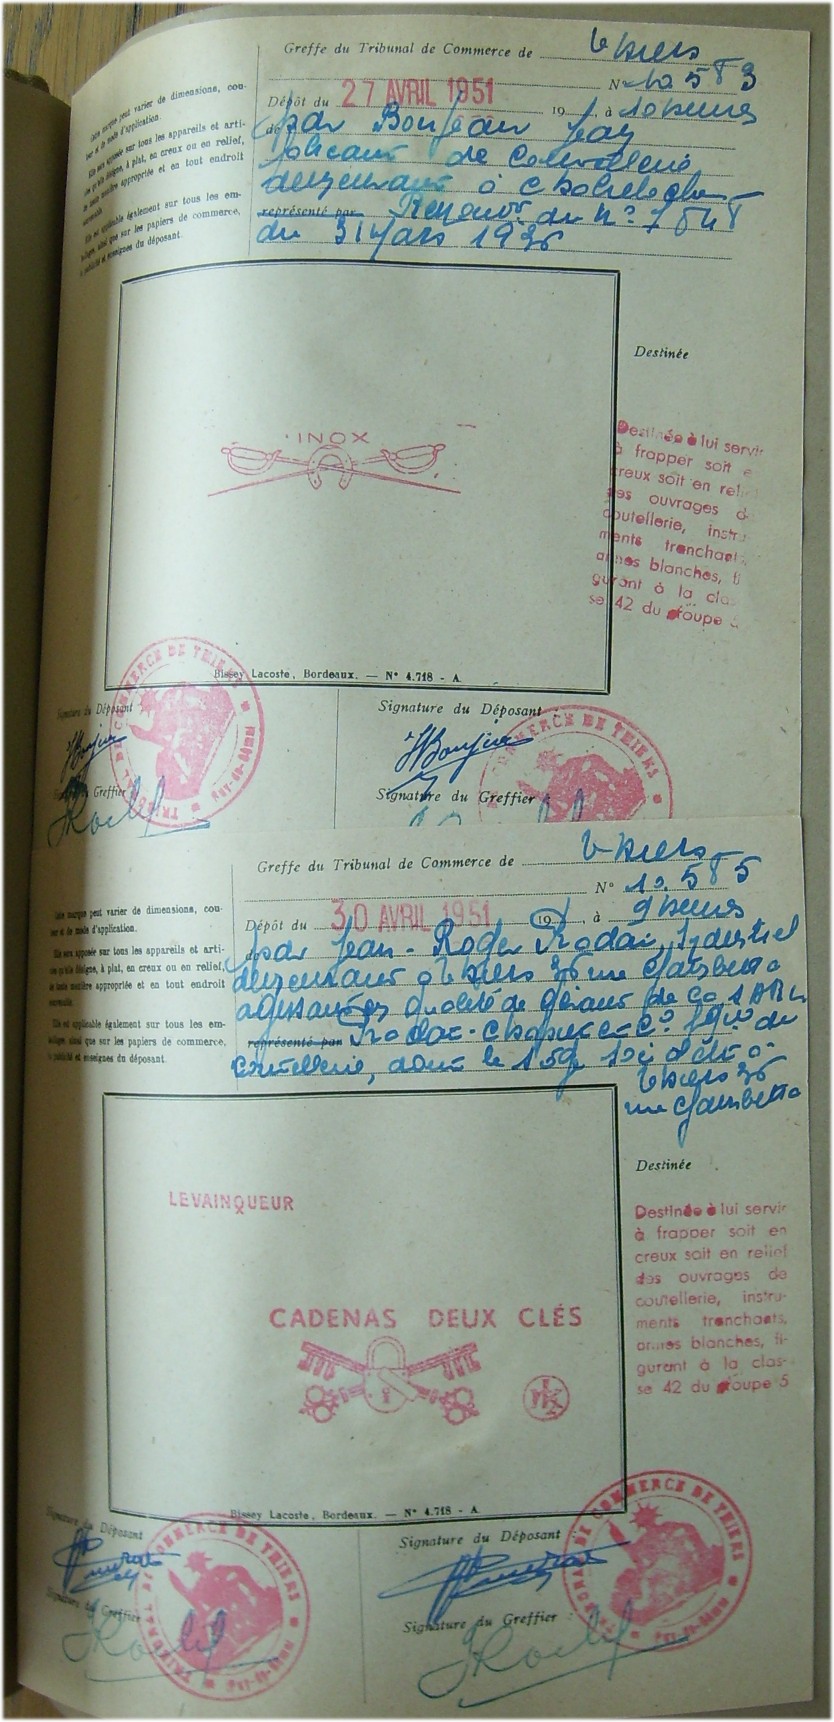 Greffe du Tribunal de Commerce de Thiers
N° 10583
Dépôt du 27 AVRIL 1951 19 , à 10 heures
par Bonjean
de Coutellerie
demeurant à
représenté par Renouvt du n° 7548
du 31 Mars 1936
Cette marque peut varier de dimensions, cou-
leur et de mode d'application.
Elle sera apposée sur tous les appareils et arti-
cles qu'elle désigne, à plat, en creux ou en relief,
de toute matière appropriée et en tout endroit
convenable.
Elle est applicable également sur tous les em-
ballages, ainsi que sur les papiers de commerce,
la publicité et enseignes du déposant.
INOX
Destinée
Destinée à lui servir
à frapper soit en
creux soit en relief
des ouvrages de
coutellerie, instru-
ments tranchants,
armes blanches, fi-
gurant à la clas-
se 42 du groupe 5
Bissey Lacoste, Bordeaux. — N° 4.718 - A
Signature du Déposant
Signature du Déposant
Signature du Greffier
Signature du Greffier
TRIBUNAL DE COMMERCE DE THIERS
Puy-de-Dôme
COMMERCE DE THIERS
Greffe du Tribunal de Commerce de Thiers
N° 10.585
Dépôt du 30 AVRIL 1951 19 , à 9 heures
par Jean-Roger Industriel
demeurant à Thiers 36 rue Gambetta
agissant en qualité de gérant de la SARL
représenté par
coutellerie, dont le siège à
Thiers 36
rue Gambetta
Cette marque peut varier de dimensions, cou-
leur et de mode d'application.
Elle sera apposée sur tous les appareils et arti-
cles qu'elle désigne, à plat, en creux ou en relief,
de toute matière appropriée et en tout endroit
convenable.
Elle est applicable également sur tous les em-
ballages, ainsi que sur les papiers de commerce,
la publicité et enseignes du déposant.
LEVAINQUEUR
CADENAS DEUX CLÉS
Destinée
Destinée à lui servir
à frapper soit en
creux soit en relief
des ouvrages de
coutellerie, instru-
ments tranchants,
armes blanches, fi-
gurant à la clas-
se 42 du groupe 5
Bissey Lacoste, Bordeaux. — N° 4.718 - A
Signature du Déposant
Signature du Déposant
Signature du Greffier
Signature du Greffier
TRIBUNAL DE COMMERCE DE THIERS
Puy-de-Dôme
TRIBUNAL DE COMMERCE DE THIERS
Puy-de-Dôme